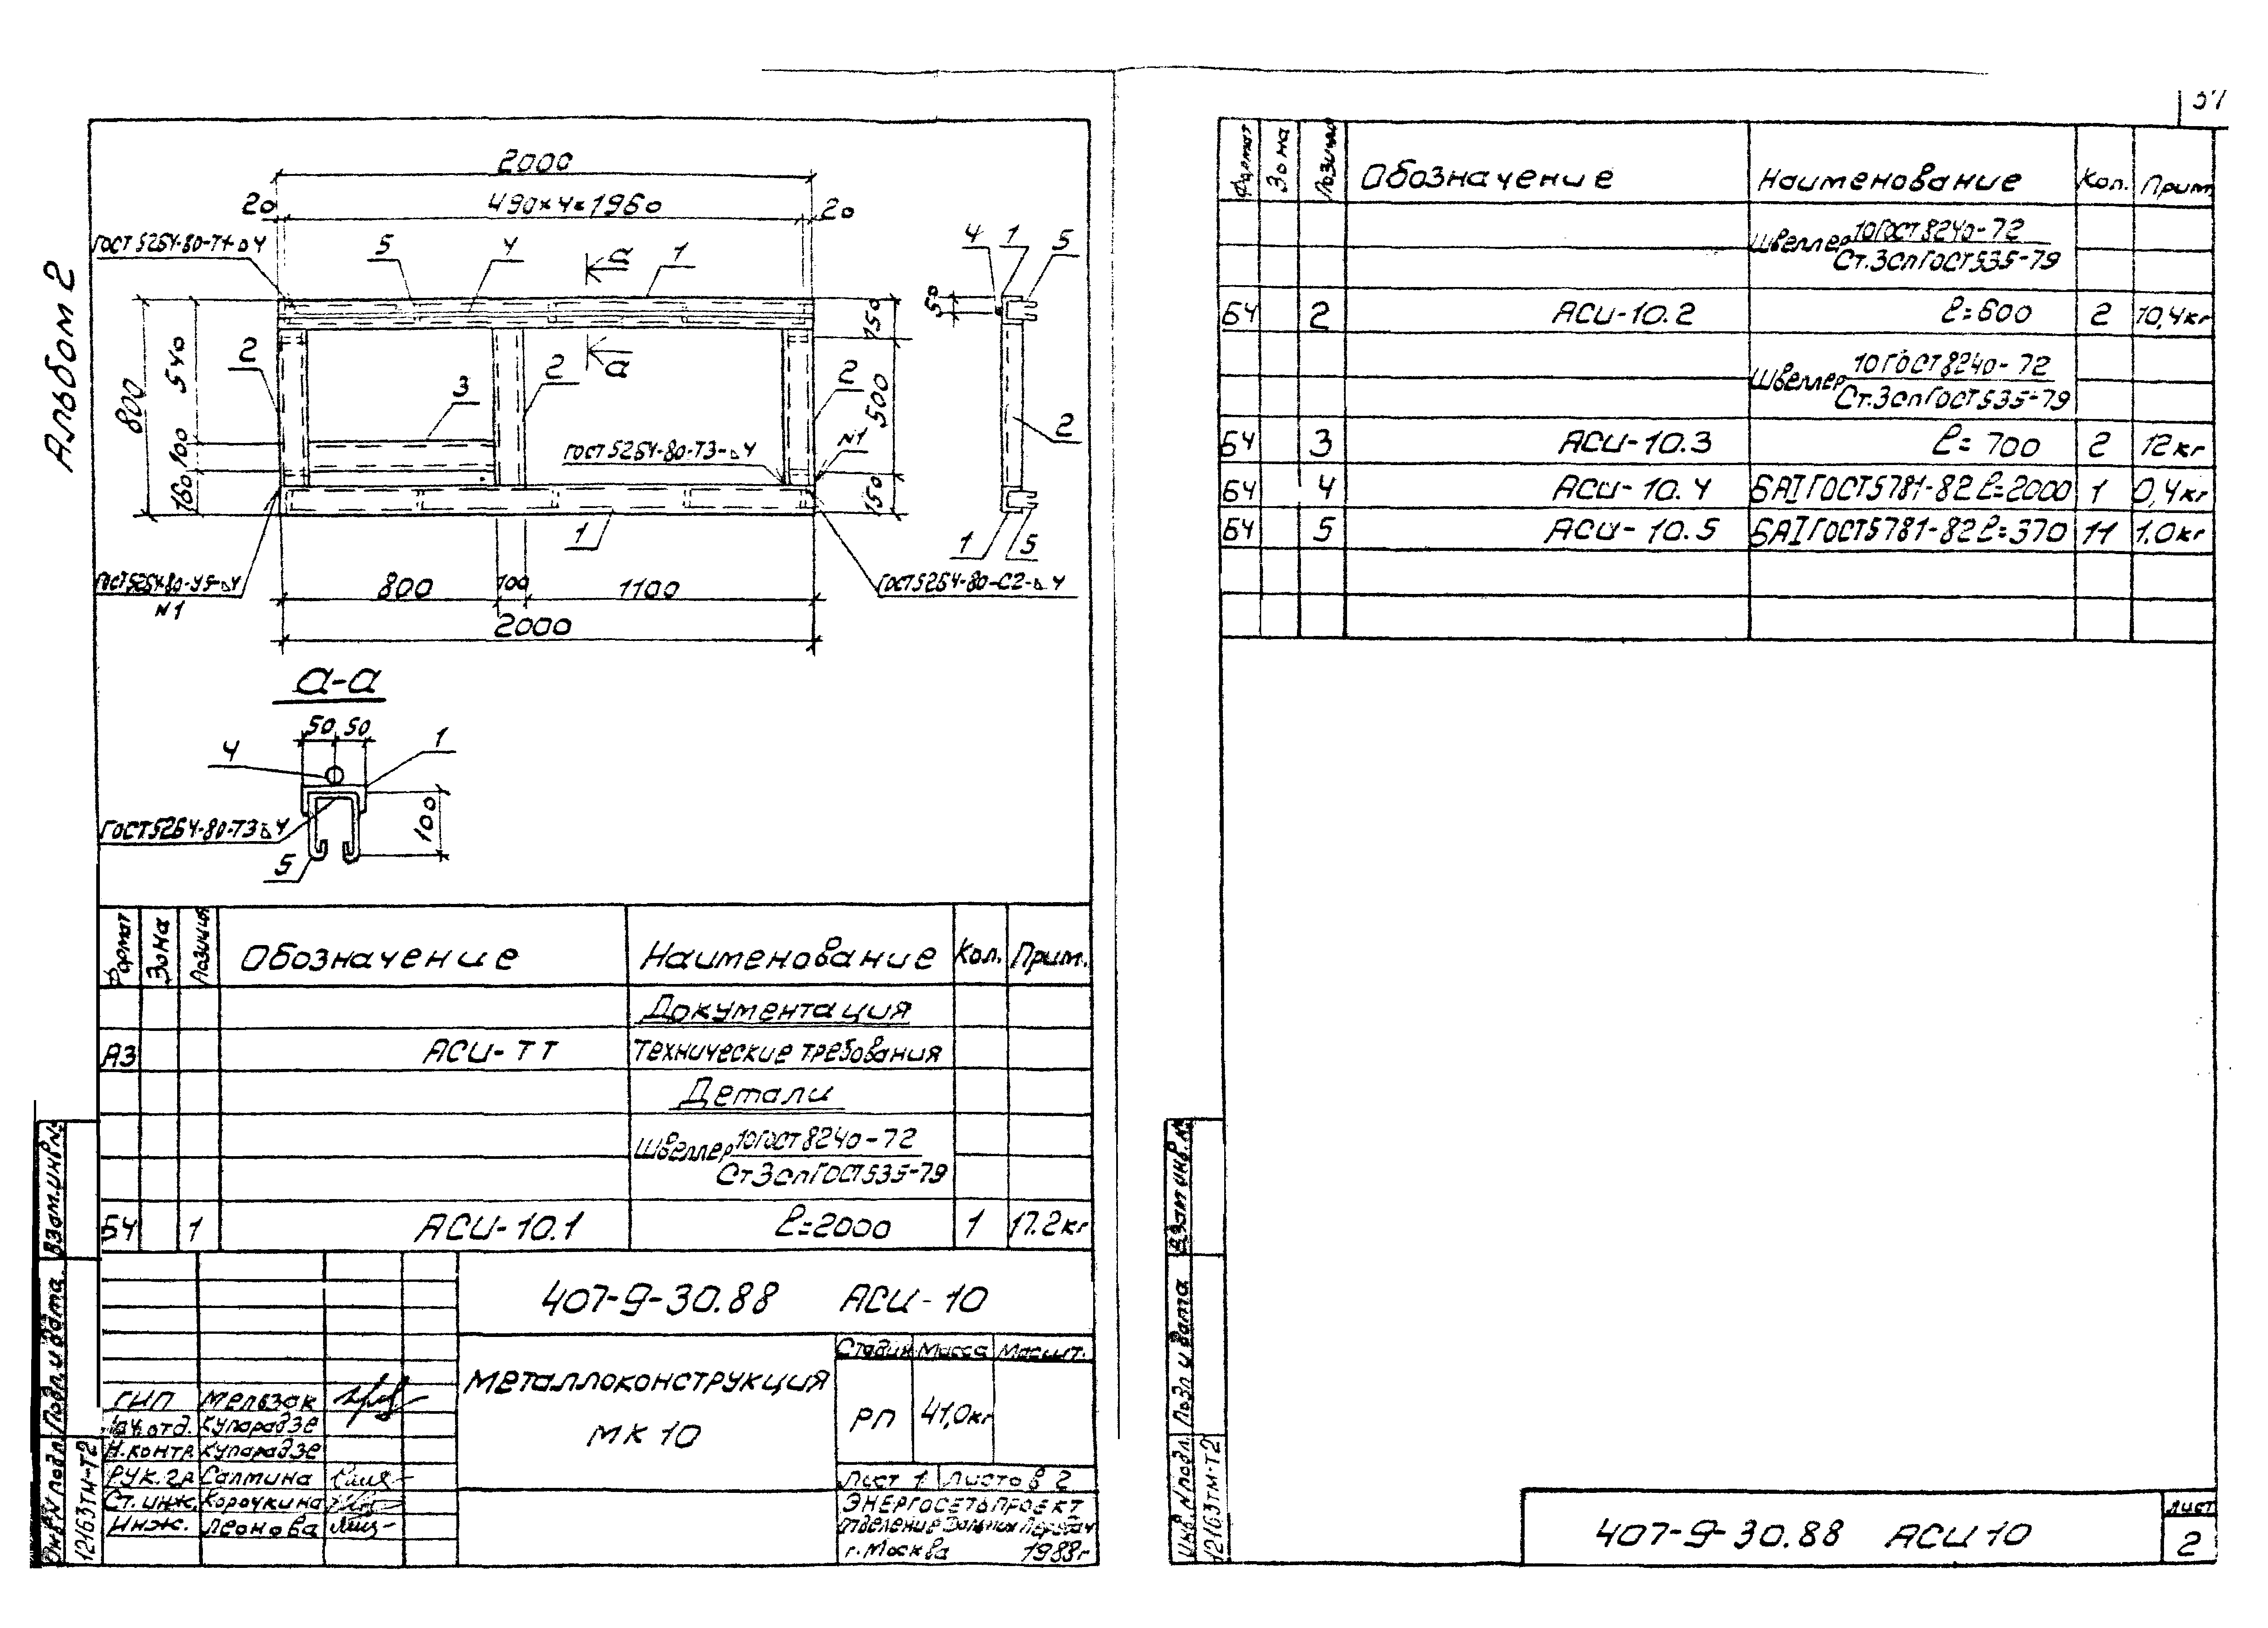 Альбом 2
2000
20 490×4=1960 20
ГОСТ 5264-80-Т1-⊿4
5 4 а 1
800
540
100
160
2 3 2 2
а
150
500
150
ГОСТ 5264-80-Т3-⊿4
N1
1
ГОСТ 5264-80-У5-⊿4
N1
ГОСТ 5264-80-С2-⊿4
800 100 1100
2000
4 1 5
50
2
1 5
а-а
50 50
4 1
100
ГОСТ 5264-80-Т3⊿4
5
Формат Зона Позиция Обозначение Наименование Кол. Прим.
Документация
А3 АСИ-ТТ Технические требования
Детали
Швеллер 10 ГОСТ 8240-72
Ст.3сп ГОСТ 535-79
БЧ 1 АСИ-10.1 ℓ=2000 1 17.2кг
407-9-30.88 АСИ-10
Металлоконструкция
МК 10
Стадия Масса Масшт.
РП 41,0кг
Лист 1 Листов 2
Энергосетьпроект
Отделение Дальних Передач
г. Москва 1988г
ГИП Мельзак
Нач.отд. Купарадзе
Н.контр. Купарадзе
Рук. гр. Салтина
Ст. инж. Корочкина
Инж. Леонова
Взам.инв.N
Подп. и дата
Инв.N подл.
12163тм-Т2
Формат Зона Позиция Обозначение Наименование Кол. Прим.
Швеллер 10 ГОСТ 8240-72
Ст.3сп ГОСТ 535-79
БЧ 2 АСИ-10.2 ℓ=600 2 10,4кг
Швеллер 10 ГОСТ 8240-72
Ст.3сп ГОСТ 535-79
БЧ 3 АСИ-10.3 ℓ=700 2 12кг
БЧ 4 АСИ-10.4 6АI ГОСТ 5781-82 ℓ=2000 1 0,4кг
БЧ 5 АСИ-10.5 6АI ГОСТ 5781-82 ℓ=370 11 1.0кг
Взам инв.N
Подп и дата
Инв.N подл.
12163тм-Т2
407-9-30.88 АСИ 10
Лист
2